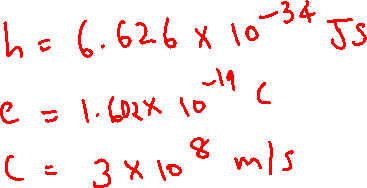 h = 6.626 × 10⁻³⁴ JS
e = 1.602× 10⁻¹⁹ C
C = 3 × 10⁸ m/s